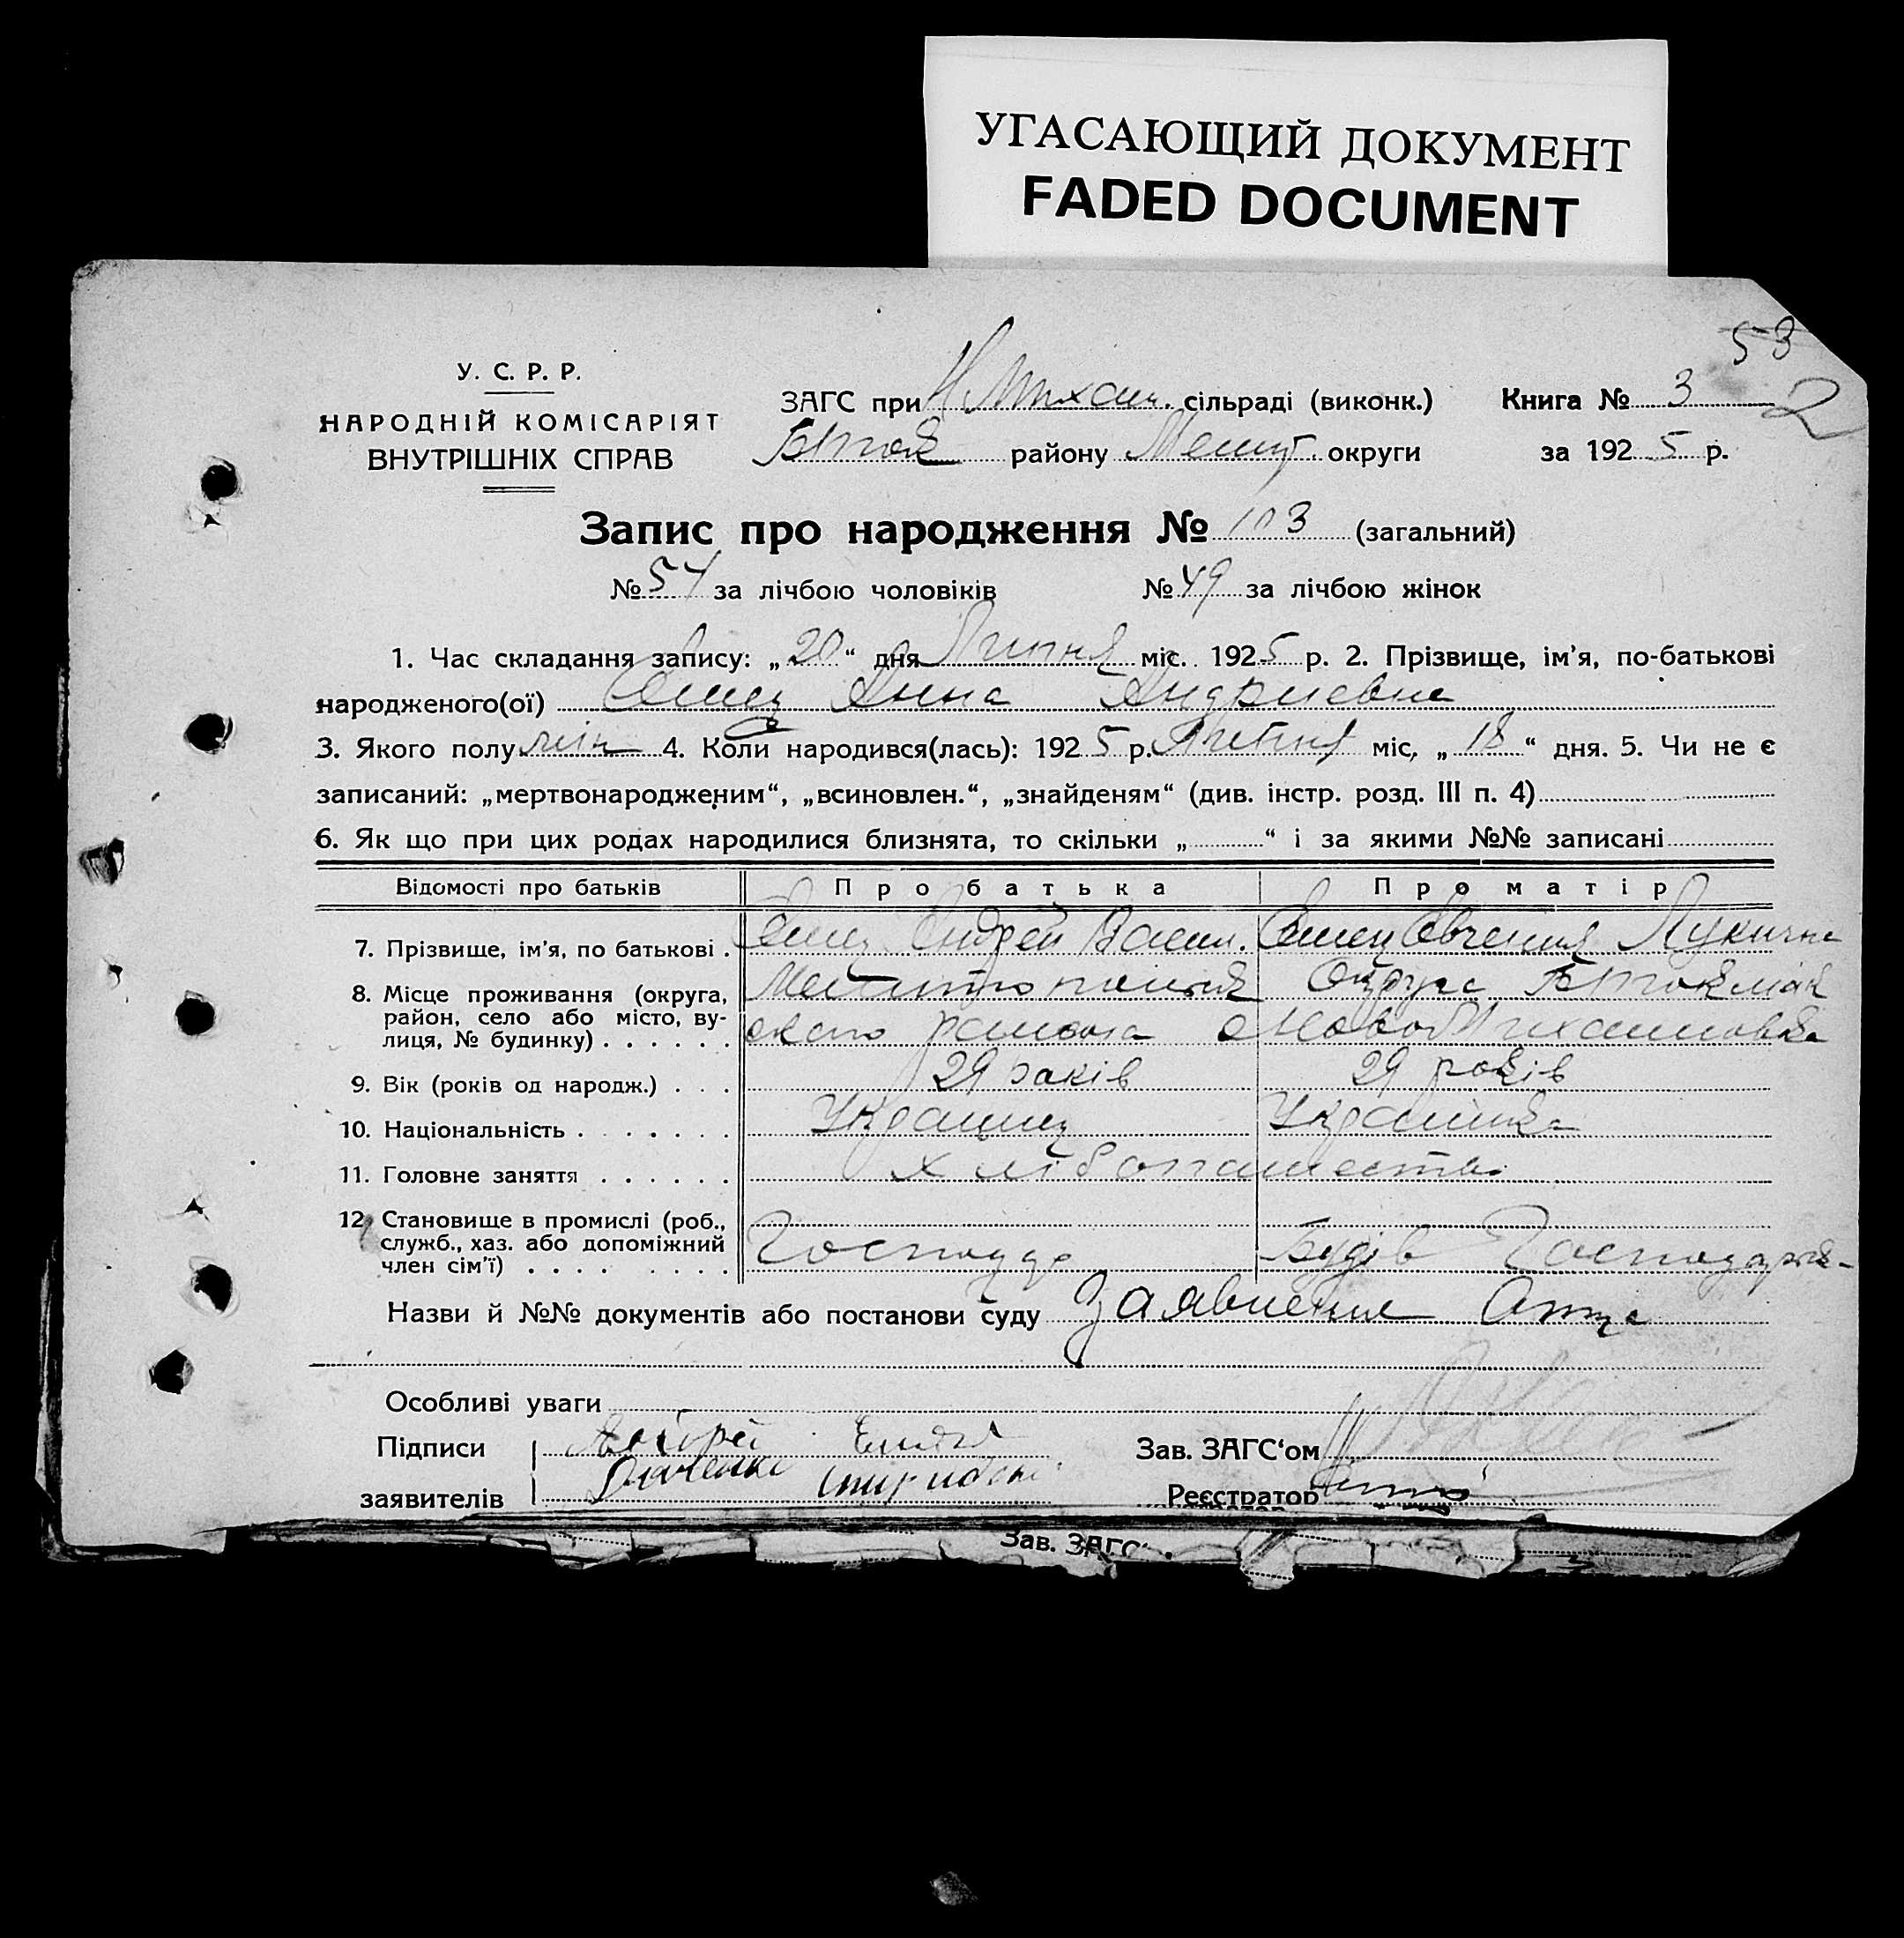 УГАСАЮЩИЙ ДОКУМЕНТ
FADED DOCUMENT
53
2
У. С. Р. Р.
НАРОДНІЙ КОМІСАРІЯТ
ВНУТРІШНІХ СПРАВ
ЗАГС при Н Михайл. сільраді (виконк.) Книга № 3
Бток району Мелит. округи за 1925 р.
Запис про народження № 103 (загальний)
№ 54 за лічбою чоловіків № 49 за лічбою жінок
1. Час складання запису: „20“ дня Липня міс. 1925 р. 2. Прізвище, ім’я, по-батькові
народженого(ої) Анна Андриевна
3. Якого полу жін 4. Коли народився(лась): 1925 р. міс, „18“ дня. 5. Чи не є
записаний: „мертвонародженим“, „всиновлен.“, „знайденям“ (див. інстр. розд. III п. 4)
6. Як що при цих родах народилися близнята, то скільки „ “ і за якими №№ записані
Відомості про батьків Про батька Про матір
7. Прізвище, ім’я, по батькові . Андрей Васил. Евгения Лукична
8. Місце проживання (округа, Мелитопольск Округа Бтокмак
район, село або місто, ву- ского района с Ново Михайловка
лиця, № будинку) . . . . . .
9. Вік (років од народж.) . . . 29 років 29 років
10. Національність . . . . . . Українец Українка
11. Головне заняття . . . . . . хлібопашество
12. Становище в промислі (роб.,
служб., хаз. або допоміжний Господар
член сім’ї) . . . . . . . .
Назви й №№ документів або постанови суду Заявления Отца
Особливі уваги
Підписи Андрей Зав. ЗАГС‘ом
заявителів Реєстратор
Зав. ЗАГС‘